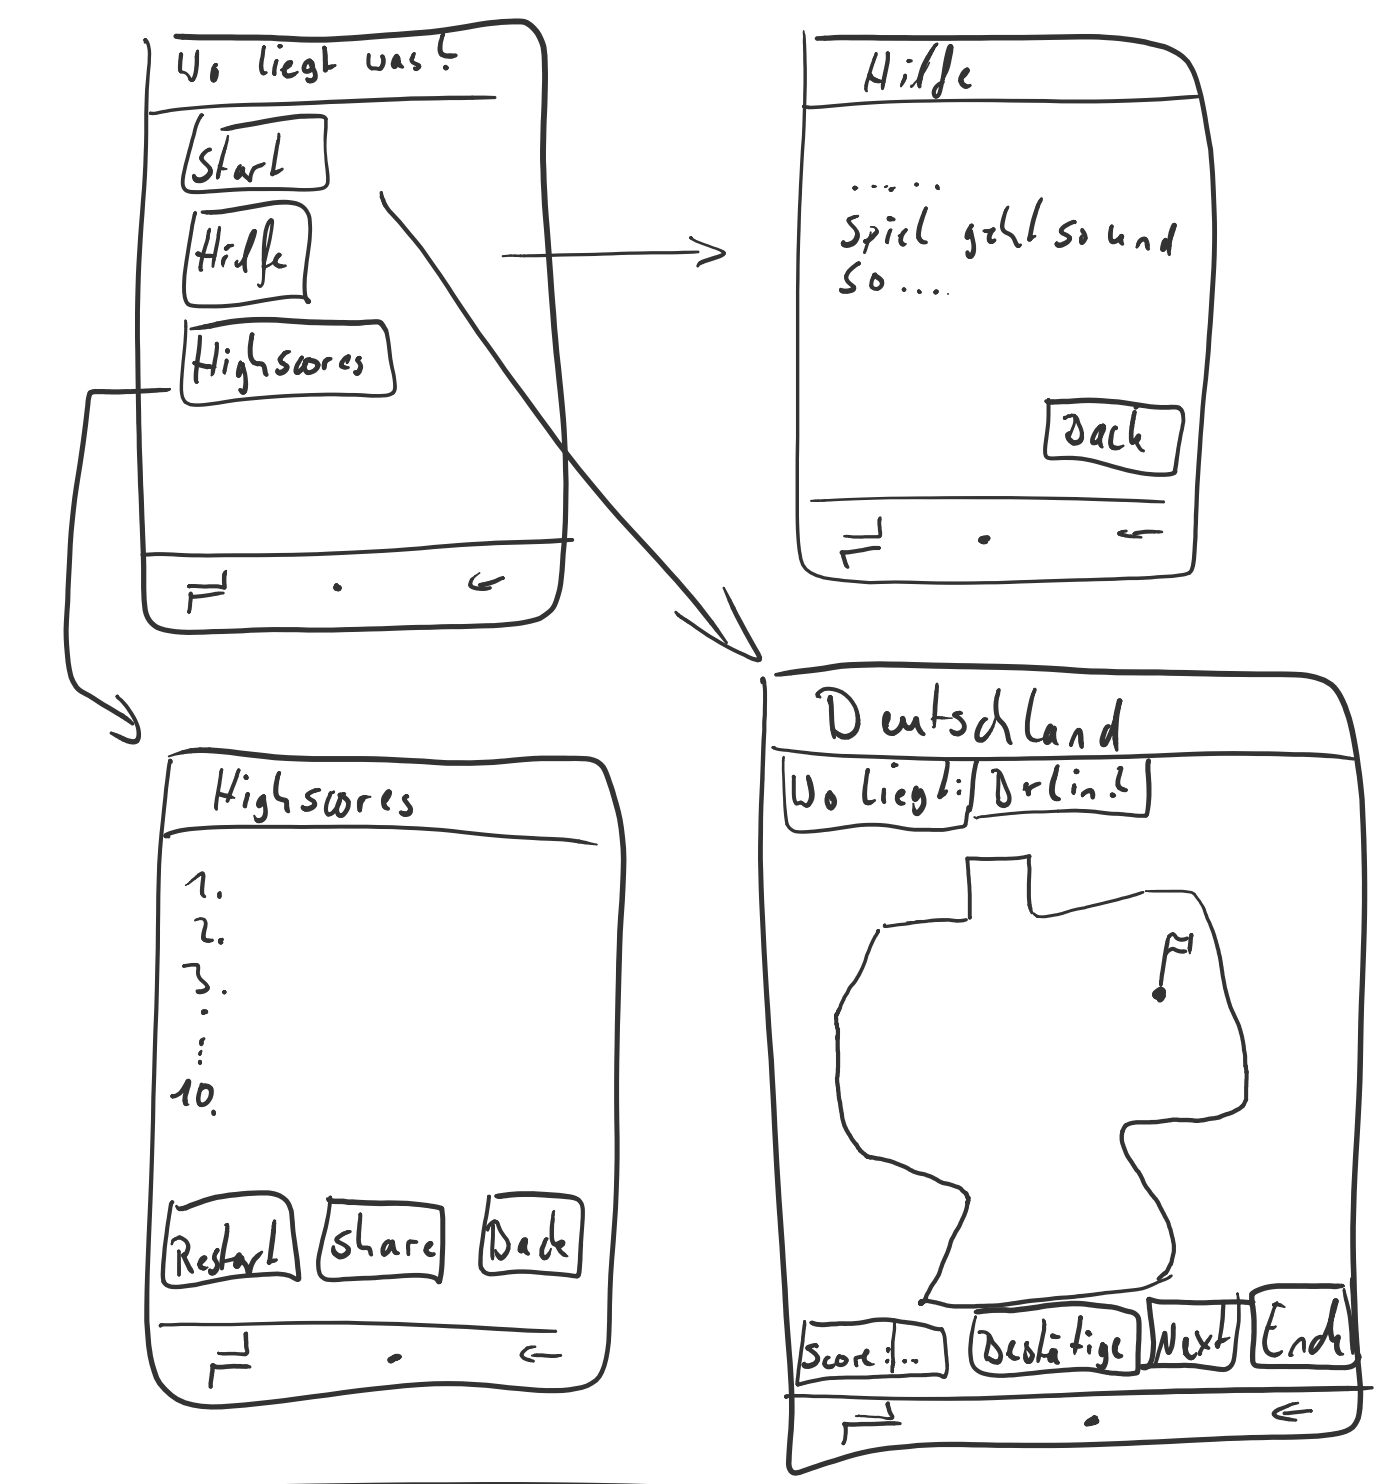 Wo liegt was?
Start
Hilfe
Highscores
Hilfe
.....
Spiel geht so und
so....
Back
Highscores
1.
2.
3.
.
⋮
10.
Restart
Share
Back
Deutschland
Wo liegt:
Berlin?
Score:...
Bestätige
Next
Ende